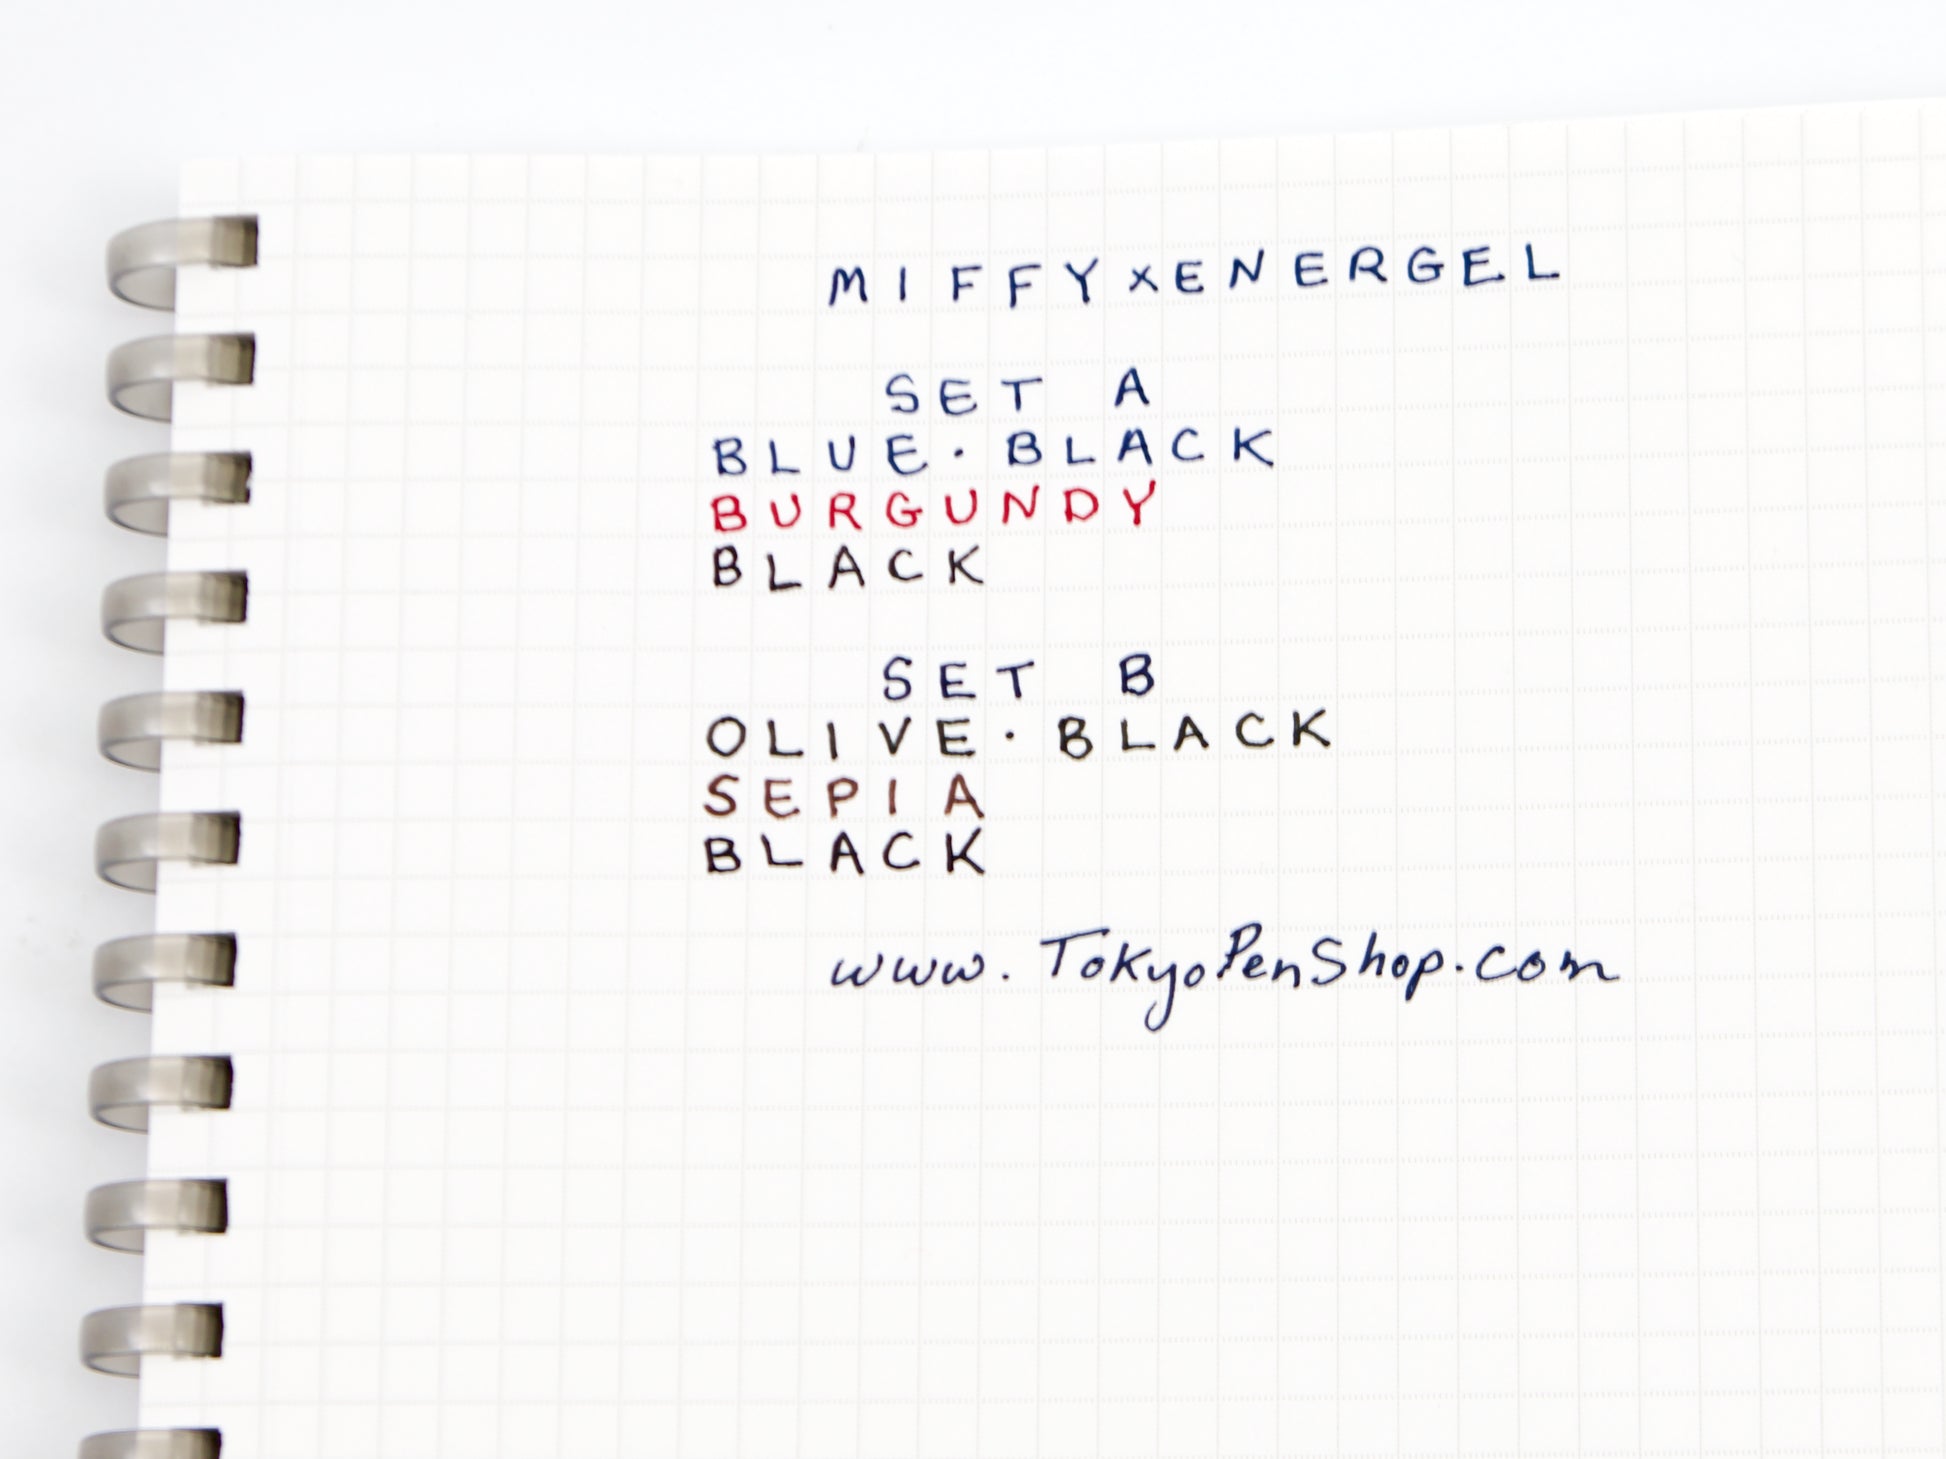 MIFFYxENERGEL
SET A
BLUE·BLACK
BURGUNDY
BLACK
SET B
OLIVE·BLACK
SEPIA
BLACK
www.TokyoPenShop.com